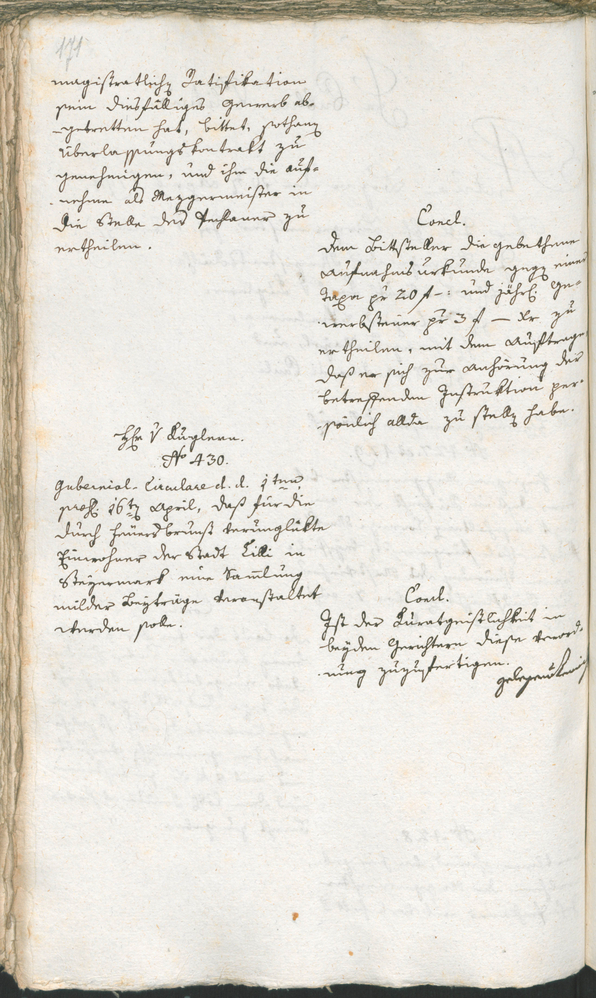 171
magistratlich Ratifikation
sein diesfälliges Gewerb ab-
-getretten hat, bittet, sothan
Überlassungskontrakt zu
genehmigen, und ihm die Auf-
nahme als Mezgermeister in
die Stelle des zu
ertheilen.
Concl.
Dem Bittsteller die gebethene
Aufnahmsurkunde geg einer
Taxa pr 20 f -: und jährl. Ge-
werbsteuer pr 3 f — Xr zu
ertheilen, mit dem Auftrage
daß er sich zur Anhörung der
betreffenden Instruktion per-
sönlich allda zu stell habe.
Hr v Kuglern.
No 430.
Gubernial-Circulare d. d. 1ten
praes. 16ten April, daß für die
durch Feuersbrunst verunglükte
Einwohner der Stadt Cilli in
Steyermark eine Sammlung
milder Beyträge veranstaltet
werden solle.
Concl.
Ist der Kuratgeistlichkeit in
beyden Gerichtern diese Verord-
nung zuzufertigen.